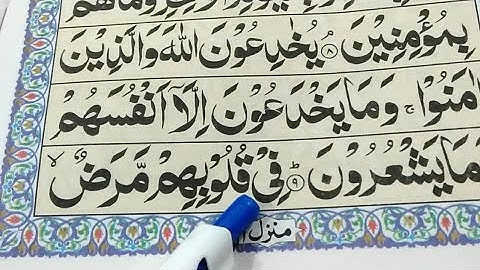 بِمُؤْمِنِيْنَ ۝٨ يُخٰدِعُوْنَ اللّٰهَ وَالَّذِيْنَ
اٰمَنُوْا ۚ وَمَا يَخْدَعُوْنَ اِلَّاۤ اَنْفُسَهُمْ
وَمَا يَشْعُرُوْنَ ؕ۝٩ فِيْ قُلُوْبِهِمْ مَّرَضٌ ۙ
منزل